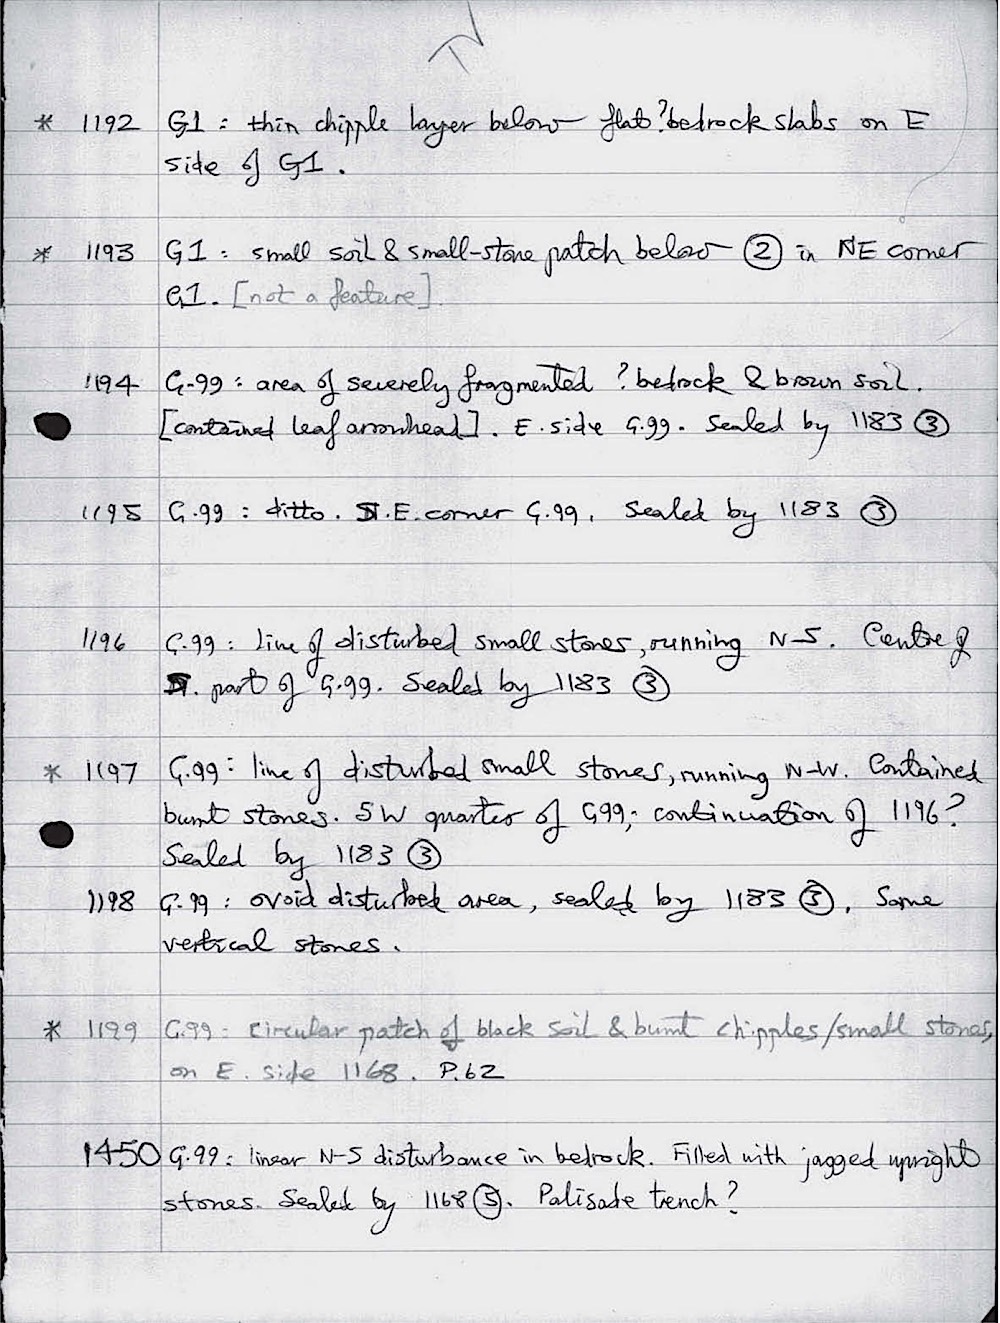 * 1192 G1 : thin chipple layer below flat ?bedrock slabs on E
side of G1.
* 1193 G1 : small soil & small-stone patch below ② in NE corner
G1. [not a feature].
1194 G.99 : area of severely fragmented ?bedrock & brown soil.
[contained leaf arrowhead]. E. side G.99. Sealed by 1183 ③
1195 G.99 : ditto. .E. corner G.99. Sealed by 1183 ③
1196 G.99 : line of disturbed small stones, running N-S. Centre of
part of G.99. Sealed by 1183 ③
* 1197 G.99 : line of disturbed small stones, running N-W. Contained
burnt stones. SW quarter of G99; continuation of 1196?
Sealed by 1183 ③
1198 G.99 : ovoid disturbed area, sealed by 1183 ③. Some
vertical stones.
* 1199 G.99 : circular patch of black soil & burnt chipples/small stones,
on E. side 1168. P.62
1450 G.99 : linear N-S disturbance in bedrock. Filled with jagged upright
stones. Sealed by 1168 ③. Palisade trench?